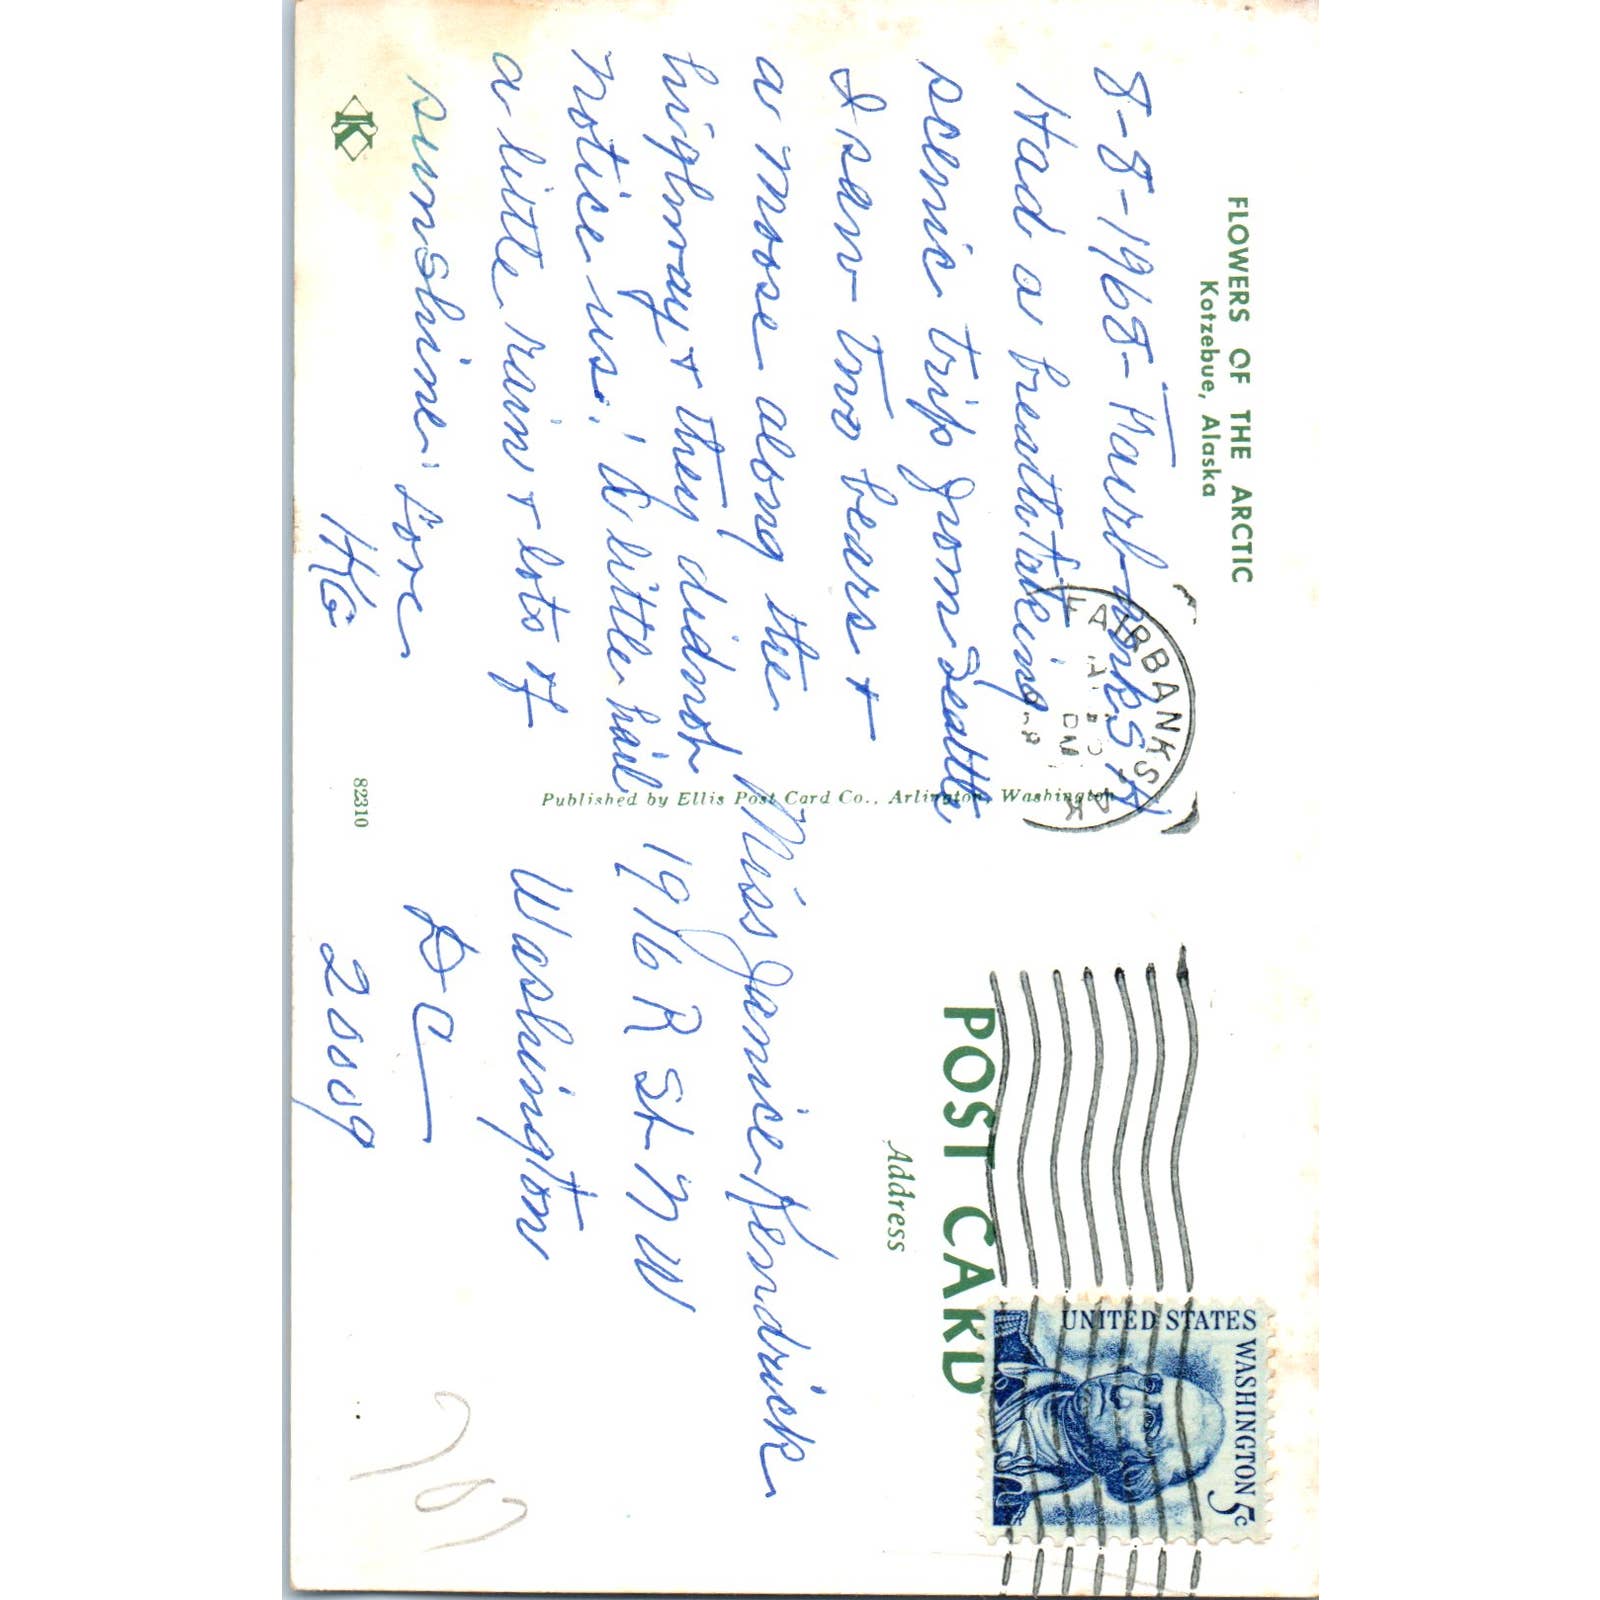 FLOWERS OF THE ARCTIC
Kotzebue, Alaska
8-8-1968-Fairbanks A
Had a breathtaking
scenic trip from Seattle
I saw two bears +
a moose along the
highway + they didnot
notice us. A little hail
a little rain + lots of
sunshine. Love
HG
K
82310
Published by Ellis Post Card Co., Arlington, Washington
FAIRBANKS
AK
PM
POST CARD
Address
UNITED STATES
WASHINGTON 5c
Miss Janice Kendrick
1916 R St N W
Washington
D C
20009